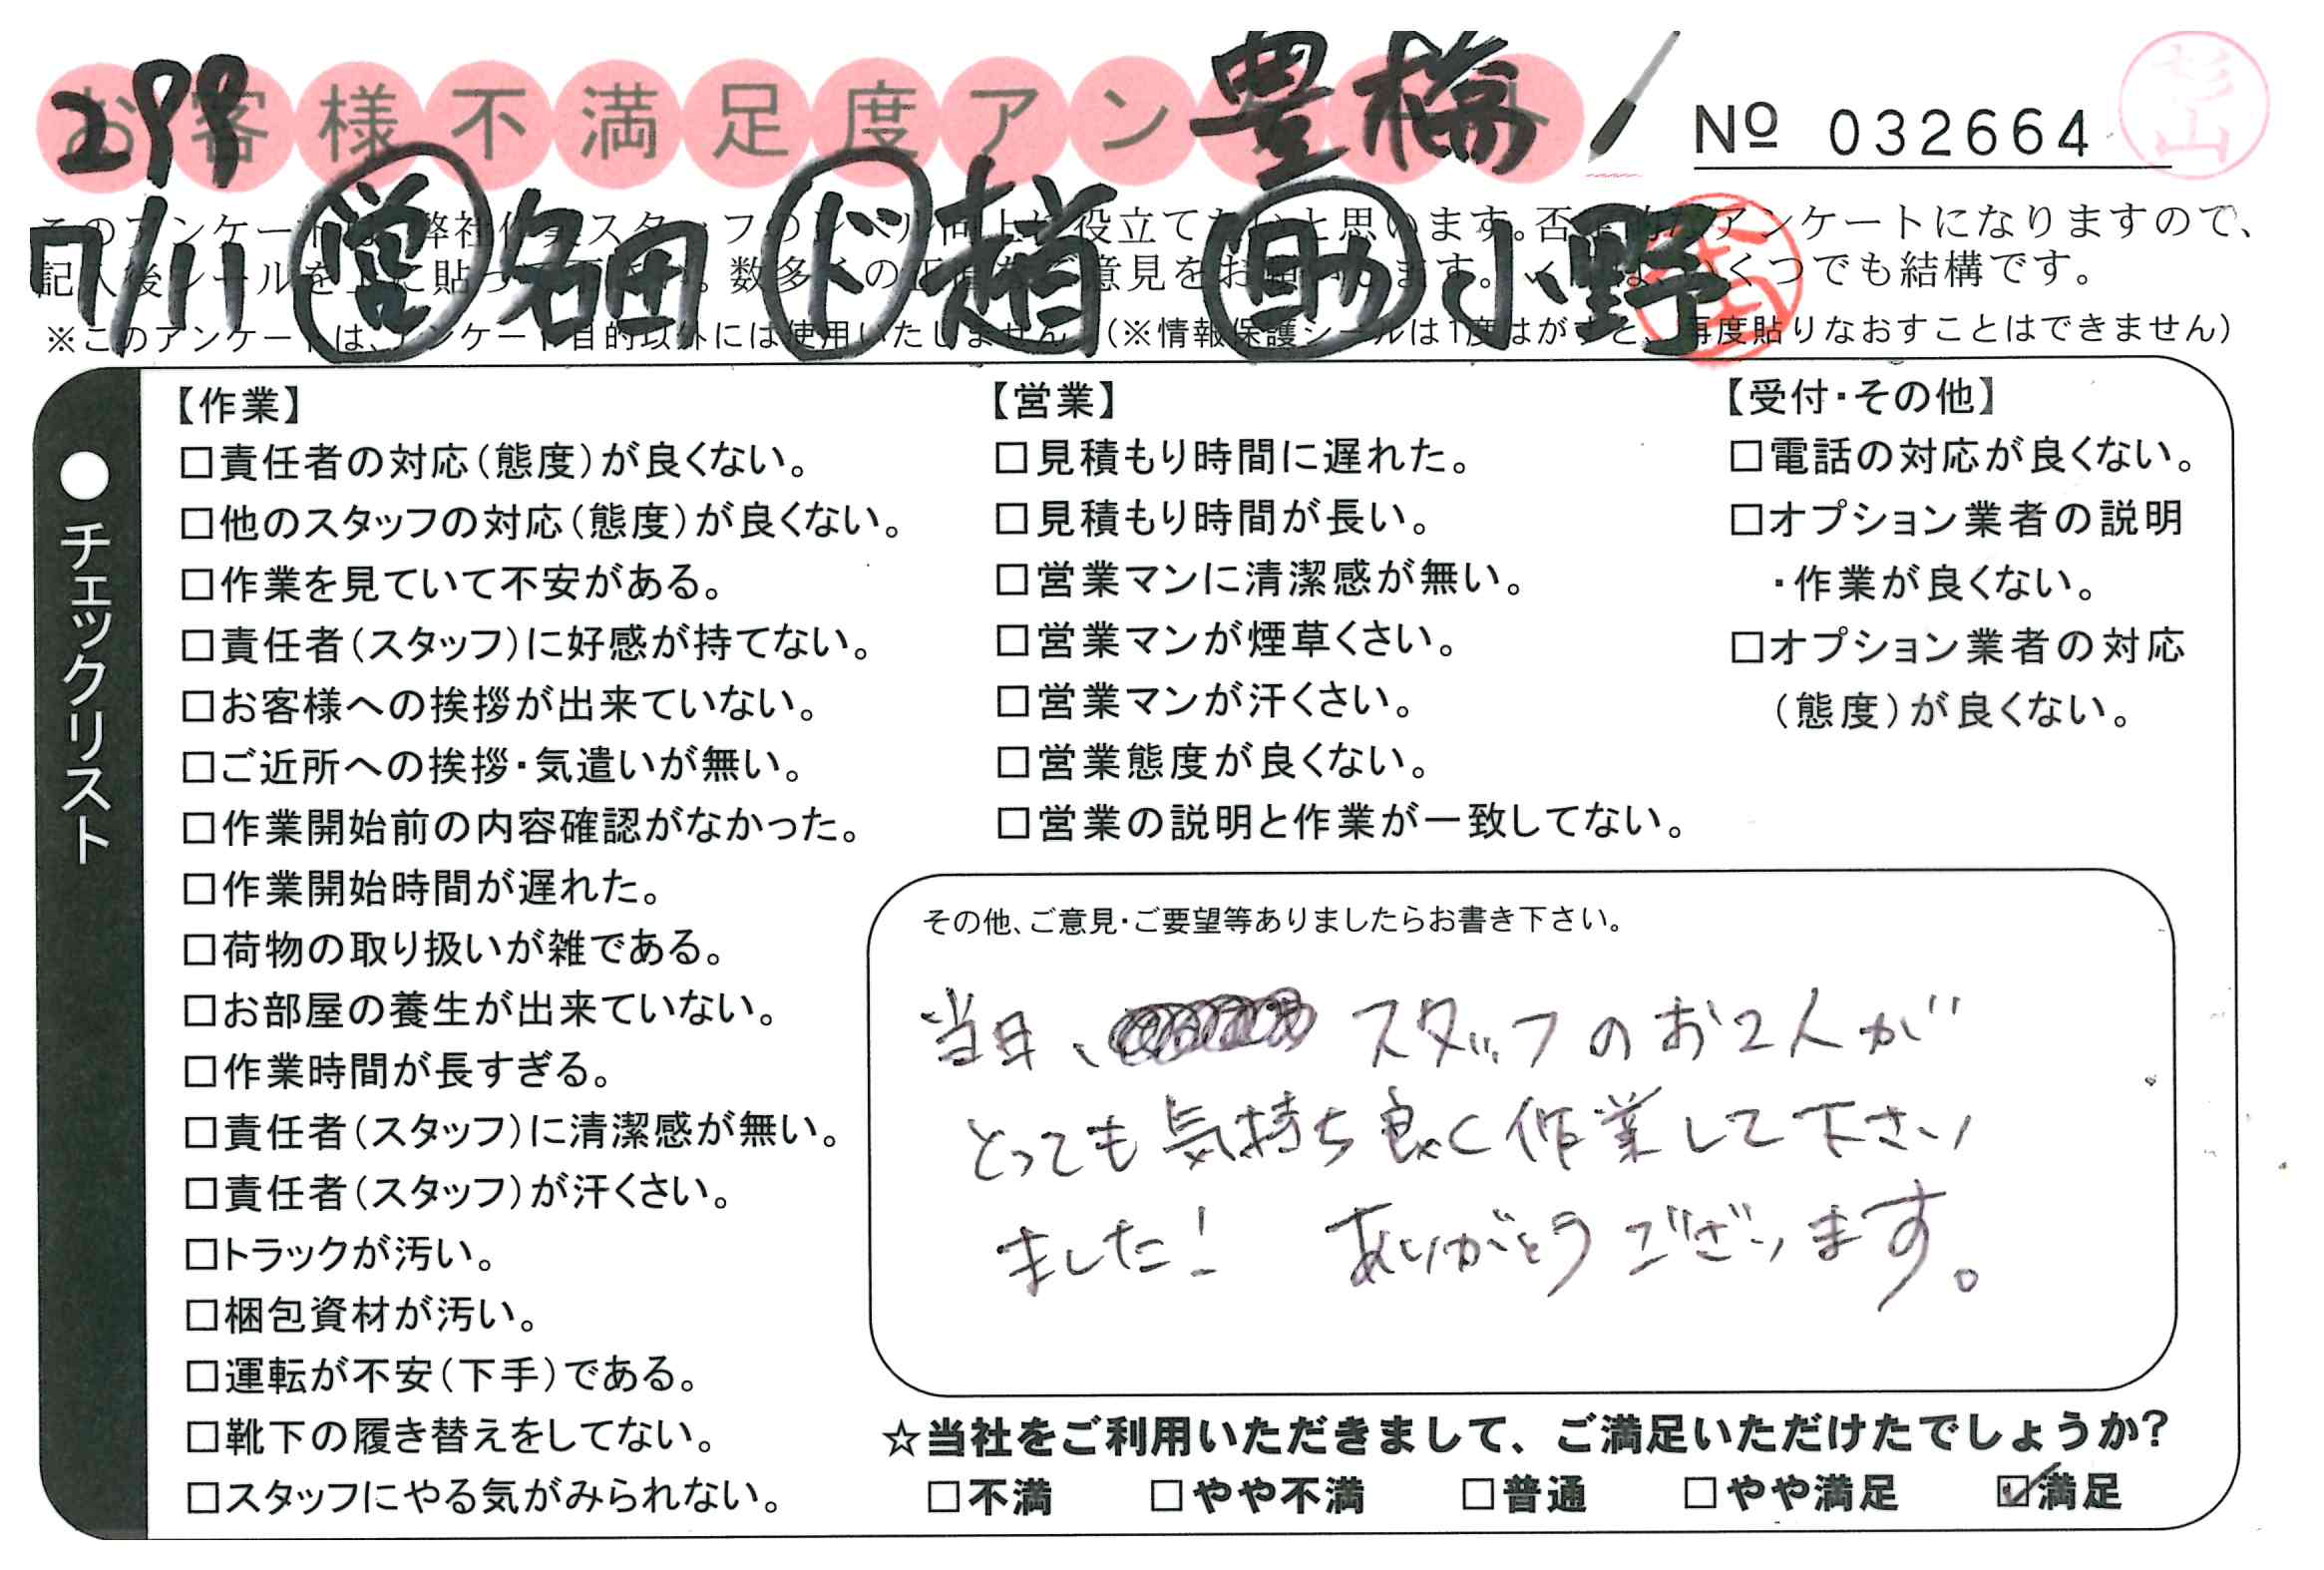 お客様不満足度アン
299
豊橋
№ 032664
杉山
7/11 営 名田 ド 趙 助 小野
記入後シールを
数多くの
意見をお
くつでも結構です。
アンケートになりますので、
※このアンケートは、アンケート目的以外には使用いたしません (※情報保護シールは1度はがすと、再度貼りなおすことはできません)
●チェックリスト
【作業】
□責任者の対応(態度)が良くない。
□他のスタッフの対応(態度)が良くない。
□作業を見ていて不安がある。
□責任者(スタッフ)に好感が持てない。
□お客様への挨拶が出来ていない。
□ご近所への挨拶・気遣いが無い。
□作業開始前の内容確認がなかった。
□作業開始時間が遅れた。
□荷物の取り扱いが雑である。
□お部屋の養生が出来ていない。
□作業時間が長すぎる。
□責任者(スタッフ)に清潔感が無い。
□責任者(スタッフ)が汗くさい。
□トラックが汚い。
□梱包資材が汚い。
□運転が不安(下手)である。
□靴下の履き替えをしてない。
□スタッフにやる気がみられない。
【営業】
□見積もり時間に遅れた。
□見積もり時間が長い。
□営業マンに清潔感が無い。
□営業マンが煙草くさい。
□営業マンが汗くさい。
□営業態度が良くない。
□営業の説明と作業が一致してない。
【受付・その他】
□電話の対応が良くない。
□オプション業者の説明
・作業が良くない。
□オプション業者の対応
(態度)が良くない。
その他、ご意見・ご要望等ありましたらお書き下さい。
当日、スタッフのお2人が
とっても気持ち良く作業して下さい
ました! ありがとうございます。
☆当社をご利用いただきまして、ご満足いただけたでしょうか?
□不満 □やや不満 □普通 □やや満足 ☑満足